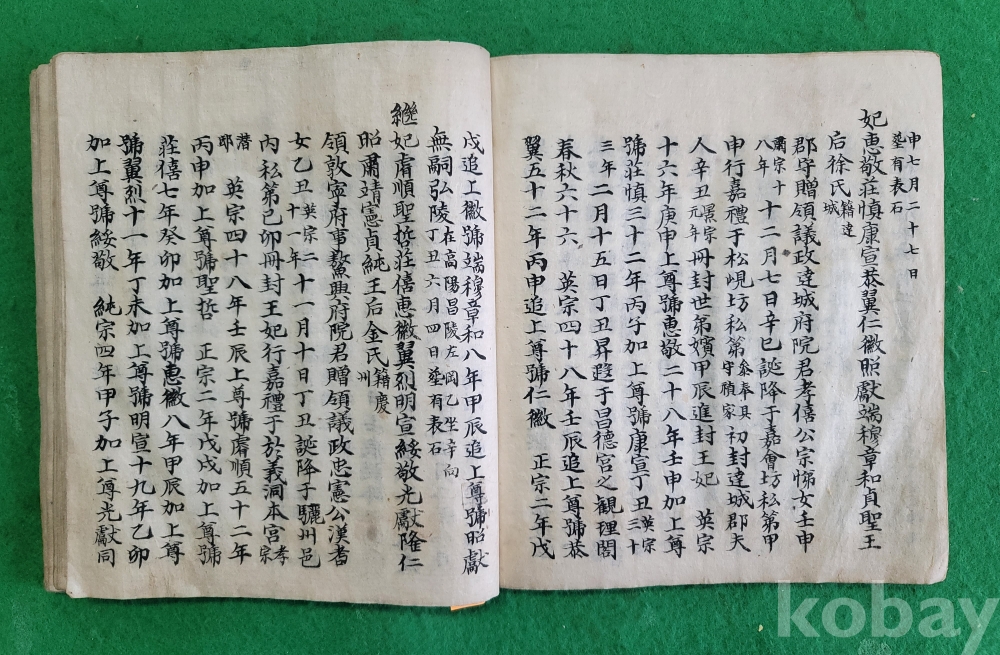 申七月二十七日
塟有表石
妃惠敬莊慎康宣恭翼仁徽昭獻端穆章和貞聖王
后徐氏籍達城
郡守贈領議政達城府院君孝僖公宗悌女壬申
肅宗十八年十二月七日辛巳誕降于嘉會坊私第甲
申行嘉禮于松峴坊私第叅奉具守禎家初封達城郡夫
人辛丑景宗元年冊封世第嬪甲辰進封王妃 英宗
十六年庚申上尊號惠敬二十八年壬申加上尊
號莊慎三十二年丙子加上尊號康宣丁丑英宗三十
三年二月十五日丁丑昇遐于昌德宮之觀理閤
春秋六十六 英宗四十八年壬辰追上尊號恭
翼五十二年丙申追上尊號仁徽 正宗二年戊
戌追上徽號端穆章和八年甲辰追上尊號昭獻
無嗣弘陵在高陽昌陵左岡乙坐辛向丁丑六月四日塟有表石
繼妃睿順聖哲莊僖惠徽翼烈明宣綏敬光獻隆仁
昭肅靖憲貞純王后金氏籍慶州
領敦寧府事鰲興府院君贈領議政忠憲公漢耉
女乙丑英宗二十一年十一月十日丁丑誕降于驪州邑
內私第己卯冊封王妃行嘉禮于於義洞本宮孝宗
潛邸 英宗四十八年壬辰上尊號睿順五十二年
丙申加上尊號聖哲 正宗二年戊戌加上尊號
莊僖七年癸卯加上尊號惠徽八年甲辰加上尊
號翼烈十一年丁未加上尊號明宣十九年乙卯
加上尊號綏敬 純宗四年甲子加上尊光獻同
kobay